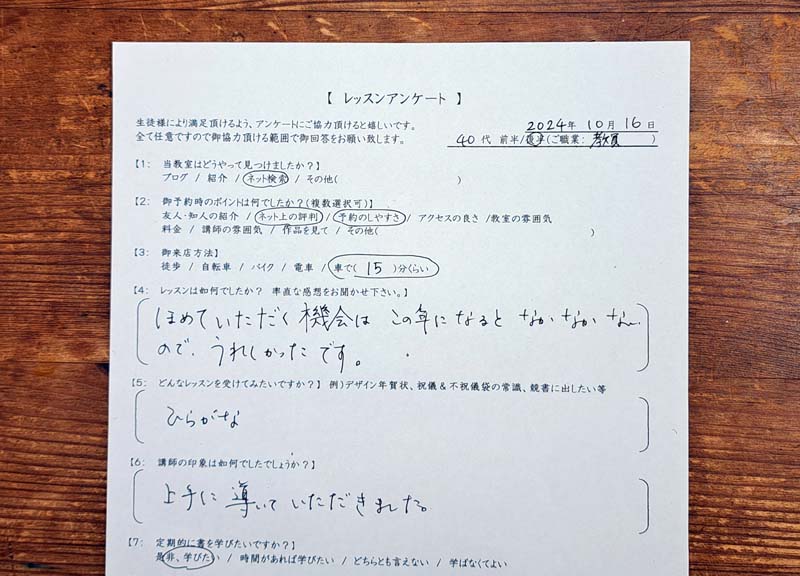 【 レッスンアンケート 】
生徒様により満足頂けるよう、アンケートにご協力頂けると嬉しいです。
2024年 10月 16日
全て任意ですので御協力頂ける範囲で御回答をお願い致します。
40代 前半/後半(ご職業: 教員 )
【1: 当教室はどうやって見つけましたか?】
ブログ / 紹介 / ネット検索 / その他( )
【2: 御予約時のポイントは何でしたか?(複数選択可)】
友人・知人の紹介 / ネット上の評判 / 予約のしやすさ / アクセスの良さ /教室の雰囲気
料金 / 講師の雰囲気 / 作品を見て / その他( )
【3: 御来店方法】
徒歩 / 自転車 / バイク / 電車 / 車で( 15 )分くらい
【4: レッスンは如何でしたか? 率直な感想をお聞かせ下さい。】
ほめていただく機会は この年になると なかなかない
ので、うれしかったです。
【5: どんなレッスンを受けてみたいですか?】 例)デザイン年賀状、祝儀&不祝儀袋の常識、競書に出したい等
ひらがな
【6: 講師の印象は如何でしたでしょうか?】
上手に導いていただきました。
【7: 定期的に書を学びたいですか?】
是非、学びたい / 時間があれば学びたい / どちらとも言えない / 学ばなくてよい